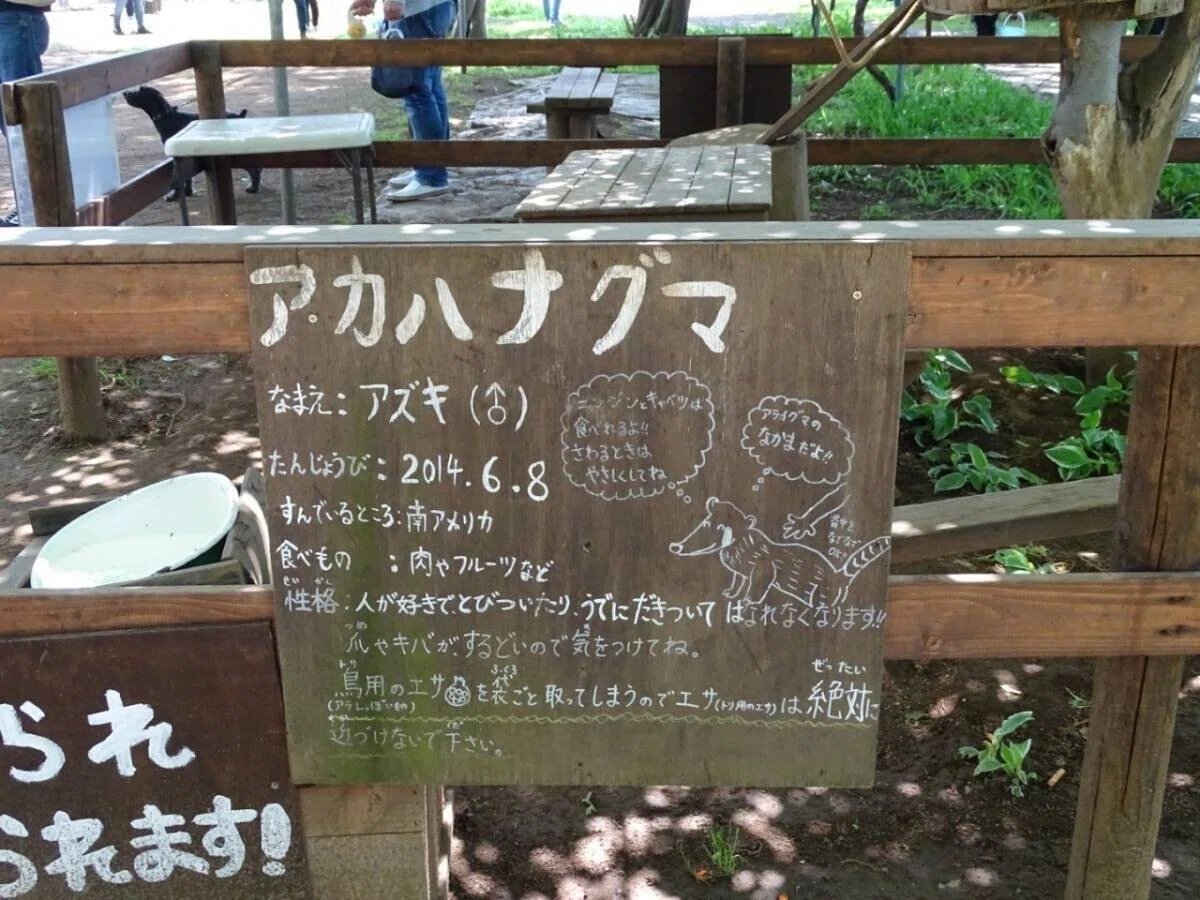 アカハナグマ
なまえ：アズキ(♂)
たんじょうび：2014.6.8
すんでいるところ：南アメリカ
食べもの ：肉やフルーツなど
せい かく
性格：人が好きで、とびついたり、うでにだきついてはなれなくなります!!
つめ
爪やキバが、するどいので気をつけてね。
トリ ふくろ
鳥用のエサを袋ごと取ってしまうのでエサ(トリ用のエサ)は絶対に
ぜったい
近づけないで下さい。
ニンジンとキャベツは
食べれるよ!!
さわるときは
やさしくしてね
アライグマの
なかまだよ!!
背中を
なでなで
OK!!
られ
られます!